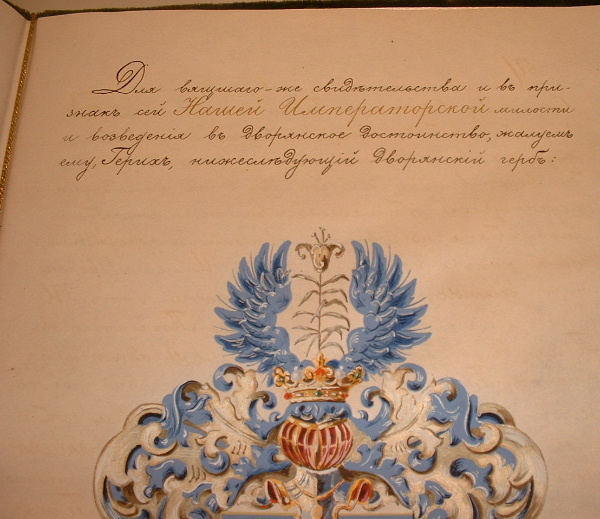 Для вящшаго-же свидѣтельства и въ при-
знакъ сей Нашей Императорской милости
и возведенія въ дворянское достоинство, жалуемъ
ему, Герихъ, нижеслѣдующій дворянскій гербъ: